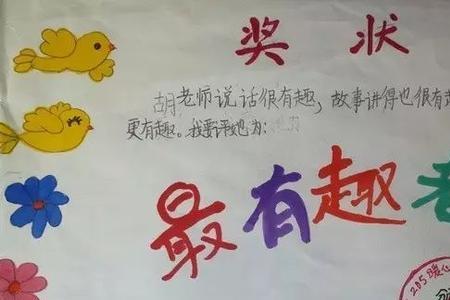 奖状
胡老师说话很有趣，故事讲得也很有
更有趣。我要评她为：
最有趣老
205暖心